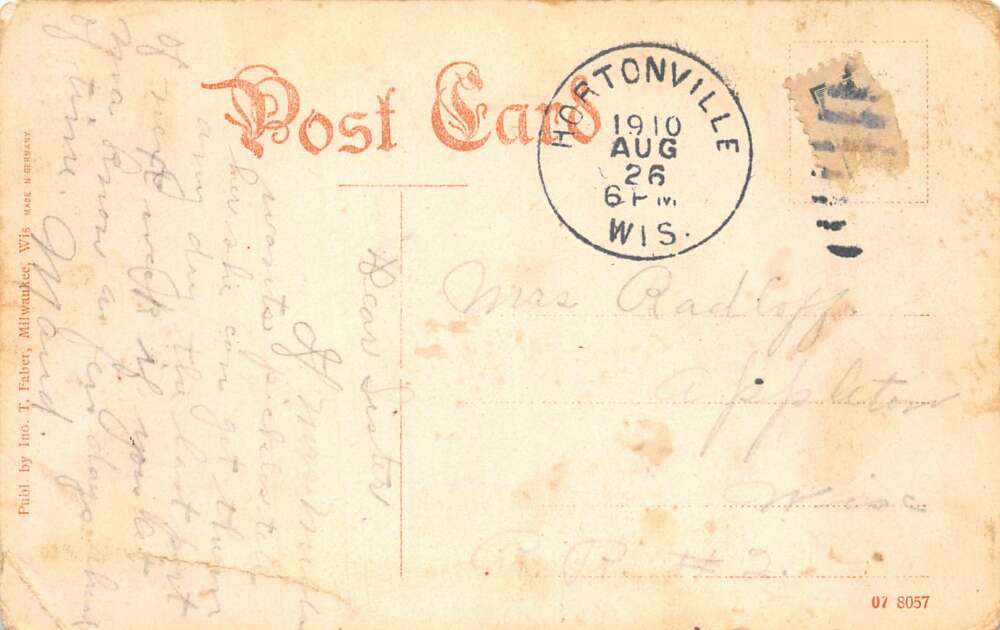 Post Card
HORTONVILLE
1910
AUG
26
6 PM
WIS.
Mrs Radloff
Appleton
Wisc
R. R. #2.
Dear Sister.
If Mrs
wants pickles tell
her she can get them
any day the last part
of next week if you let
me know a few days ahead
of time. Maud.
Publ by Ino. T. Faber, Milwaukee, Wis MADE IN GERMANY
07 8057